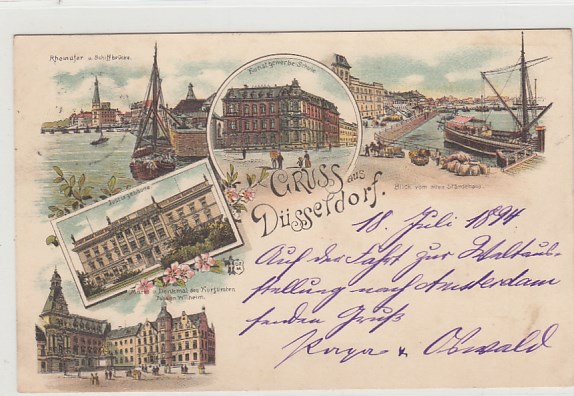 Rheinufer u. Schiffbrücke.
Kunstgewerbe-Schule
Blick vom alten
GRUSS aus
Düsseldorf.
Markt u. Denkmal des Kurfürsten
Wilhelm.
18. Juli 1894
Auf der Fahrt zur Weltaus-
stellung nach Amsterdam
senden Gruß
Oswald